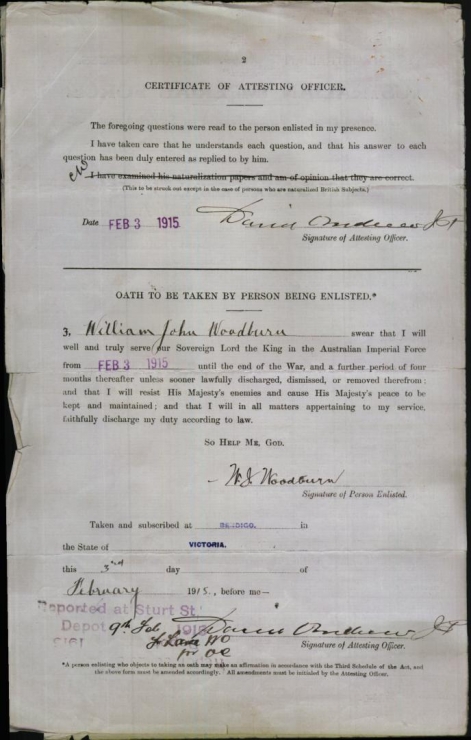 2
CERTIFICATE OF ATTESTING OFFICER.
The foregoing questions were read to the person enlisted in my presence.
I have taken care that he understands each question, and that his answer to each
question has been duly entered as replied to by him.
I have examined his naturalization papers and am of opinion that they are correct.
(This to be struck out except in the case of persons who are naturalized British Subjects.)
Date FEB 3 1915
Signature of Attesting Officer.
OATH TO BE TAKEN BY PERSON BEING ENLISTED.*
3. William John Woodburn swear that I will
well and truly serve our Sovereign Lord the King in the Australian Imperial Force
from FEB 3 1915 until the end of the War, and a further period of four
months thereafter unless sooner lawfully discharged, dismissed, or removed therefrom;
and that I will resist His Majesty's enemies and cause His Majesty's peace to be
kept and maintained; and that I will in all matters appertaining to my service,
faithfully discharge my duty according to law.
SO HELP ME, GOD.
W. J. Woodburn
Signature of Person Enlisted.
Taken and subscribed at BENDIGO. in
the State of VICTORIA.
this 3rd day of
February 1915, before me—
Reported at Sturt St.
Depot 9th Feb 1915
for OC
Signature of Attesting Officer.
*A person enlisting who objects to taking an oath may make an affirmation in accordance with the Third Schedule of the Act, and
the above form must be amended accordingly. All amendments must be initialed by the Attesting Officer.